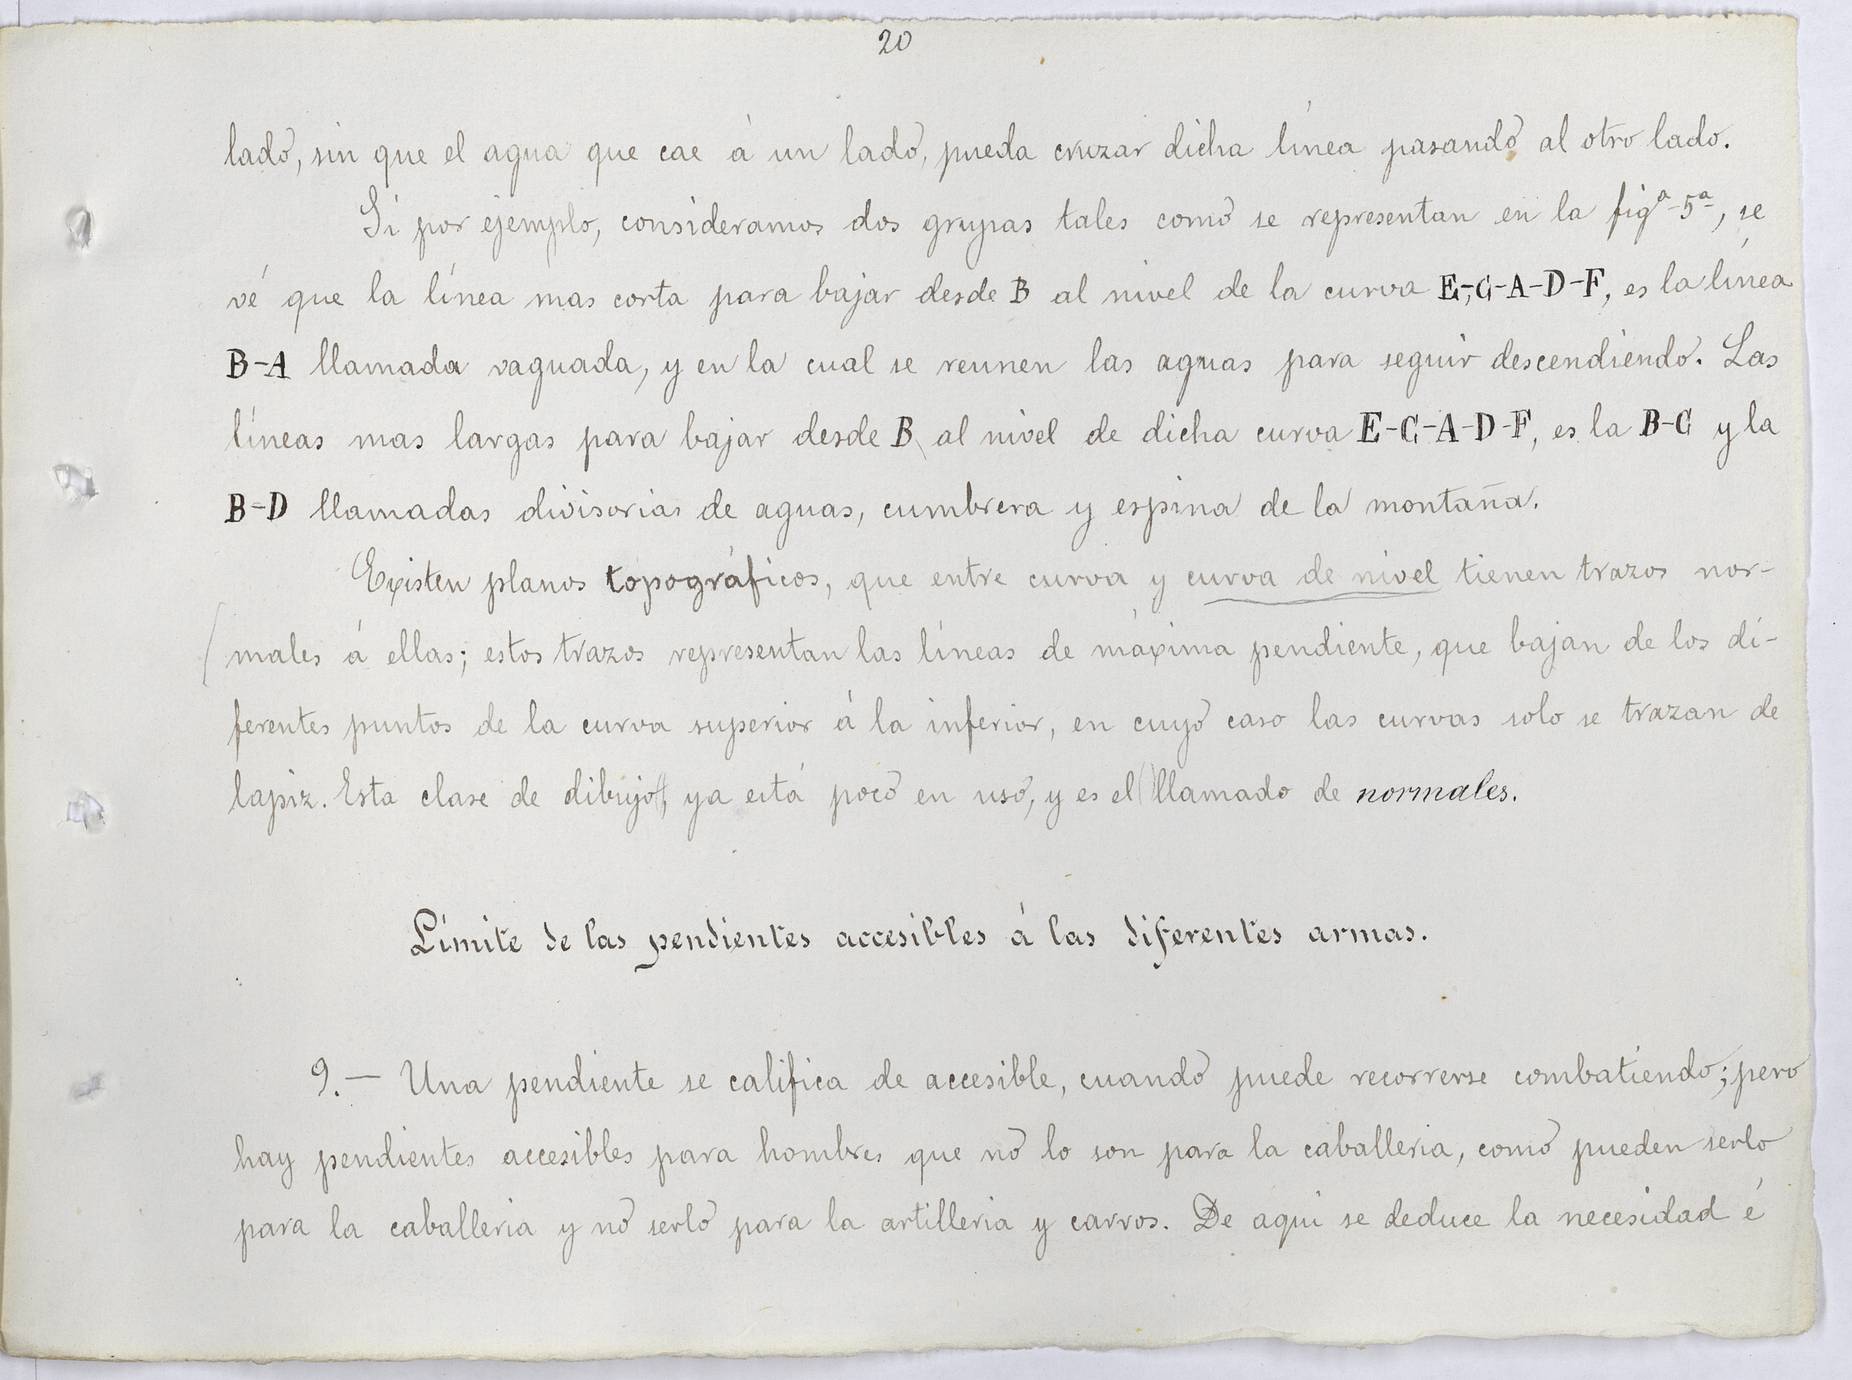 20
lado, sin que el agua que cae á un lado, pueda cruzar dicha línea pasando al otro lado.
Si por ejemplo, consideramos dos grupas tales como se representan en la figª 5ª, se
vé que la línea mas corta para bajar desde B al nivel de la curva E-C-A-D-F, es la línea
B-A llamada vaguada, y en la cual se reunen las aguas para seguir descendiendo. Las
líneas mas largas para bajar desde B, al nivel de dicha curva E-C-A-D-F, es la B-C y la
B-D llamadas divisorias de aguas, cumbrera y espina de la montaña.
Existen planos topográficos, que entre curva y curva de nivel tienen trazos nor-
males á ellas; estos trazos representan las líneas de máxima pendiente, que bajan de los di-
ferentes puntos de la curva superior á la inferior, en cuyo caso las curvas solo se trazan de
lapiz. Esta clase de dibujo, ya está poco en uso, y es el llamado de normales.
Límite de las pendientes accesibles á las diferentes armas.
9.— Una pendiente se califica de accesible, cuando puede recorrerse combatiendo; pero
hay pendientes accesibles para hombres que no lo son para la caballeria, como pueden serlo
para la caballeria y no serlo para la artilleria y carros. De aqui se deduce la necesidad é